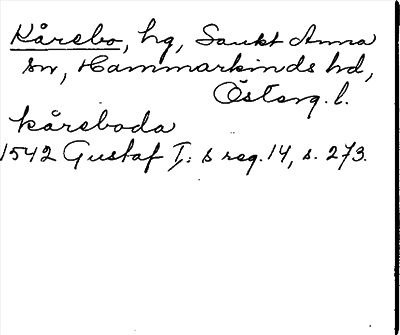 Kårebo, hg, Sankt Anna
sn, Hammarkinds hd,
Österg. l.
kåreboda
1542 Gustaf I: s reg. 14, s. 273.